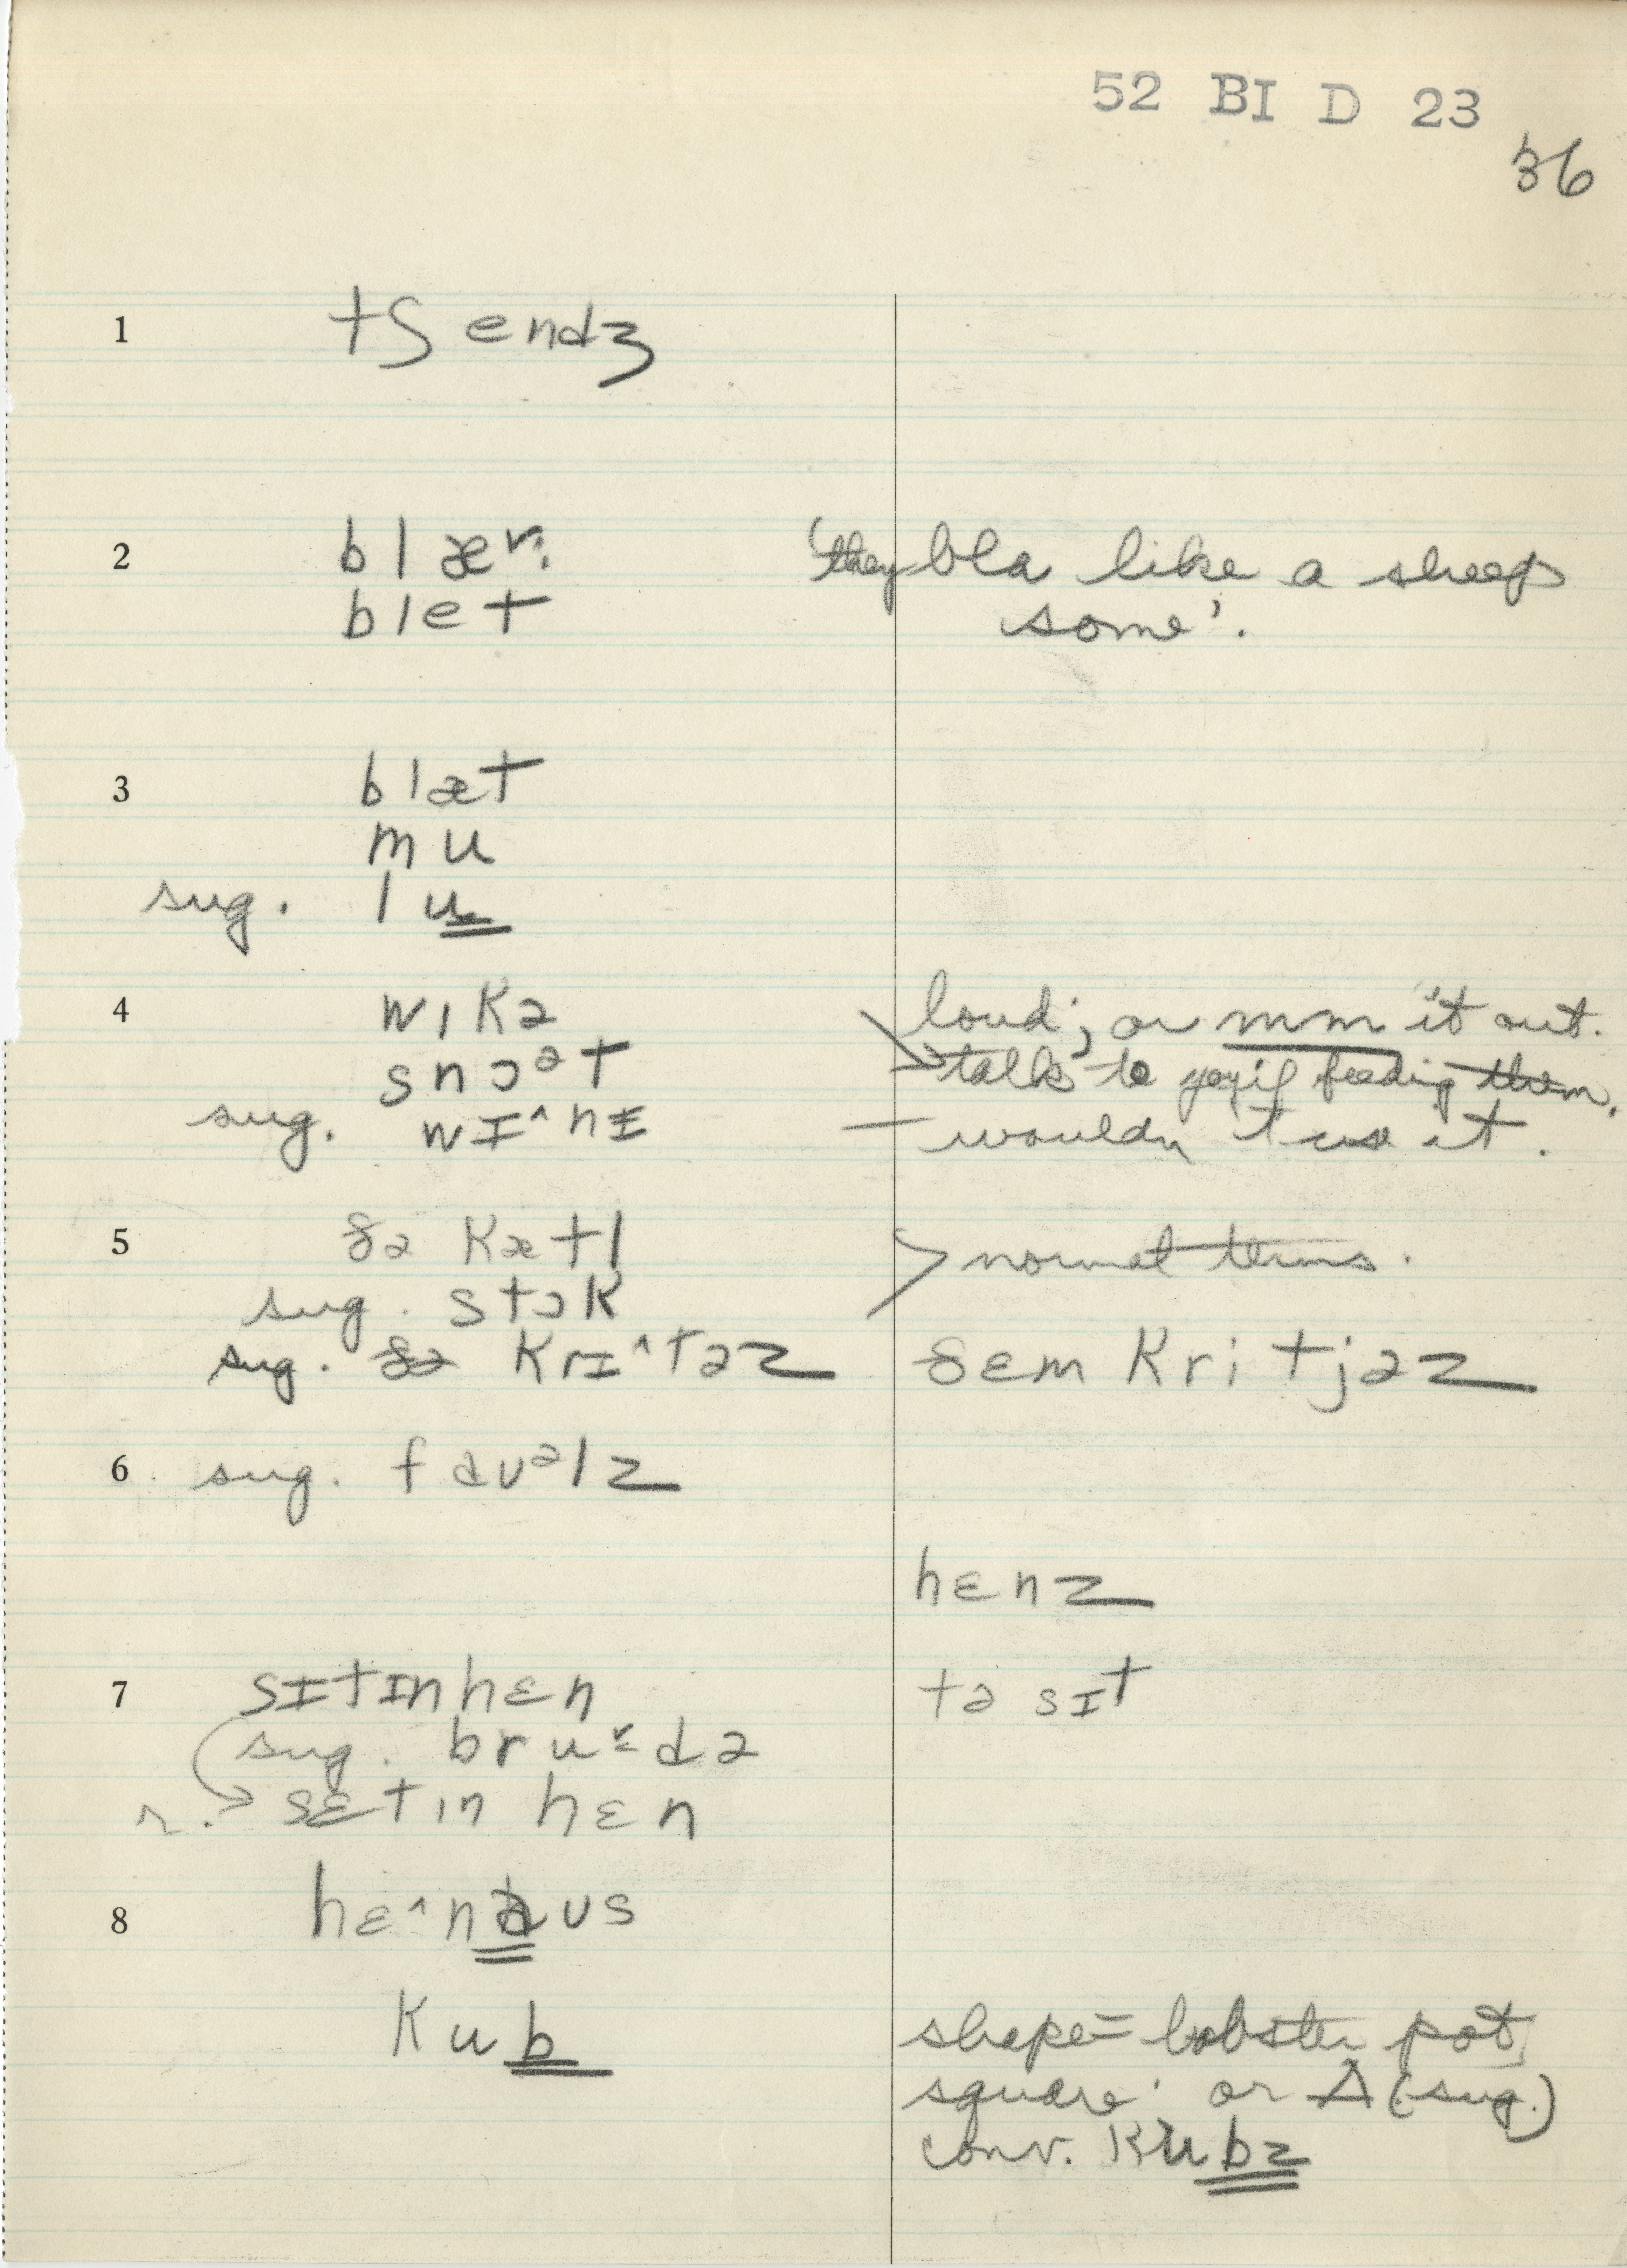 52 BI D 23
36
1 tʃendʒ
2 blæ 'they bla like a sheep
blet some'.
3 blæt
mu
sug. lu
4 wɪkə loud'; or mm it out.
snɔᵊt talk to if feeding them.
sug. wɪ^nɪ — wouldn't use it.
5 ðə kætl > normal terms.
sug. stɔk
sug. ðə krɪ^təz ðɛm kritjəz
6 sug. fauᵊlz
hɛnz
7 sɪtɪn hɛn tə sɪt
sug. brudə
r. sɛtɪn hɛn
8 hɛ^naus
kub shape = lobster pot,
square' or Δ (sug.)
conv. kubz